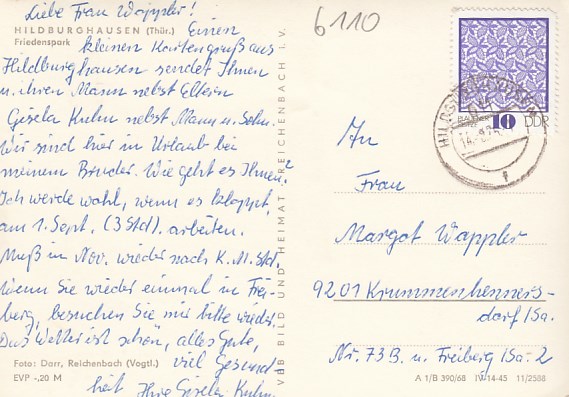 Liebe Frau Wappler!
HILDBURGHAUSEN (Thür.)
Friedenspark
Einen
kleinen Kartengruß aus
Hildburghausen sendet Ihnen
u. ihren Mann nebst Eltern
Gisela Kuhn nebst Mann u. Sohn.
Wir sind hier in Urlaub bei
meinem Bruder. Wie geht es Ihnen?
Ich werde wohl, wenn es klappt,
am 1. Sept. (3 Std.) arbeiten.
Muß in Nov. wieder nach K.M.Std.
Wenn Sie wieder einmal in Frei-
berg, besuchen Sie mir bitte wieder.
Das Wetter ist schön, alles Gute,
viel Gesund-
heit Ihre Gisela Kuhn.
Foto: Darr, Reichenbach (Vogtl.)
EVP -,20 M
VEB BILD UND HEIMAT REICHENBACH I. V.
6110
10
DDR
An
Frau
Margot Wappler
9201 Krummenhenners-
dorf /Sa.
Nr. 73B. u. Freiberg /Sa. 2
A 1/B 390/68 IV-14-45 11/2588